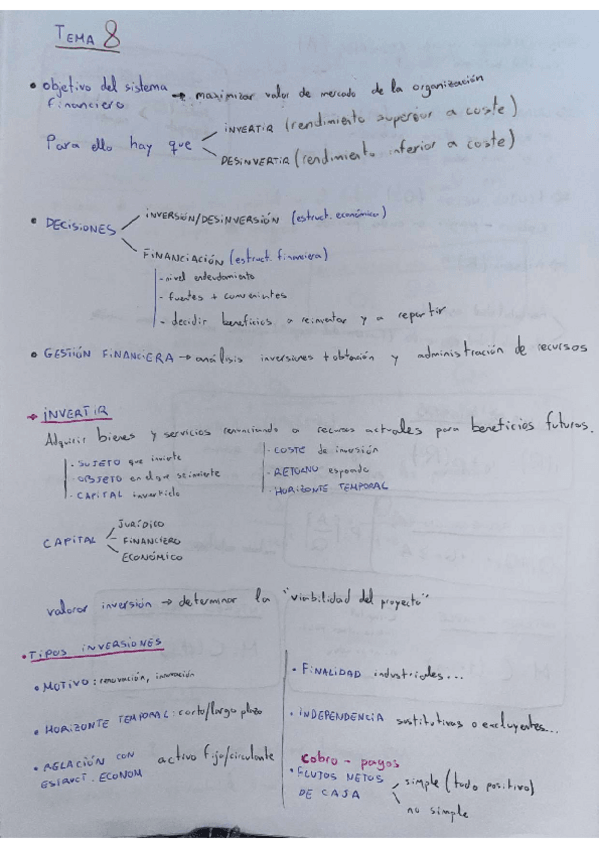 TEMA 8
• objetivo del sistema financiero → maximizar valor de mercado de la organización
Para ello hay que
INVERTIR (rendimiento superior a coste)
DESINVERTIR (rendimiento inferior a coste)
• DECISIONES
INVERSIÓN/DESINVERSIÓN (estruct. económico)
FINANCIACIÓN (estruct. financiera)
- nivel endeudamiento
- fuentes + convenientes
- decidir beneficios a reinvertir y a repartir
• GESTIÓN FINANCIERA → análisis inversiones + obtención y administración de recursos
→ INVERTIR
Adquirir bienes y servicios renunciando a recursos actuales para beneficios futuros.
- SUJETO que invierte
- OBJETO en el que se invierte
- CAPITAL invertido
- COSTE de inversión
- RETORNO esperado
- HORIZONTE TEMPORAL
CAPITAL
JURÍDICO
FINANCIERO
ECONÓMICO
valorar inversión → determinar la "viabilidad del proyecto"
• TIPOS INVERSIONES
• MOTIVO: renovación, innovación
• HORIZONTE TEMPORAL: corto/largo plazo
• RELACIÓN CON ESTRUCT. ECONOM activo fijo/circulante
• FINALIDAD industriales...
• INDEPENDENCIA sustitutivas o excluyentes...
cobro - pagos
• FLUJOS NETOS DE CAJA
simple (todo positivo)
no simple